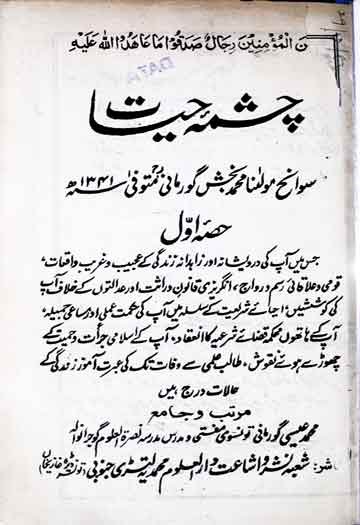 ن الْمُؤْمِنِينَ رِجَالٌ صَدَقُوا مَا عَاهَدُوا اللّٰهَ عَلَيْهِ
DATA
چشمۂ حیات
سوانح مولٰنا محمد بخش گورمانی متوفی ۱۳۴۱ھ
حصہ اوّل
جس میں آپ کی درویشانہ اور زاہدانہ زندگی کے عجیب و غریب واقعات،
قومی و علاقائی رسم و رواج، انگریزی قانونِ وراثت اور عدالتوں کے خلاف آپ
کی کوششیں، احیائے شریعت کے سلسلہ میں آپ کی حکمت عملی اور مساعی جمیلہ،
آپ کے ہاتھوں محکمہ قضائے شرعیہ کا انعقاد، آپ کے اسلامی جرأت و حمیت کے
چھوڑے ہوئے نقوش، طالب علمی سے وفات تک کی عبرت آموز زندگی کے
حالات درج ہیں
مرتب و جامع
محمد عیسیٰ گورمانی تونسوی مفتی و مدرس مدرسہ نصرۃ العلوم گوجرانوالہ
شر: شعبہ نشر و اشاعت دار العلوم محمدیہ لتڑی جنوبی